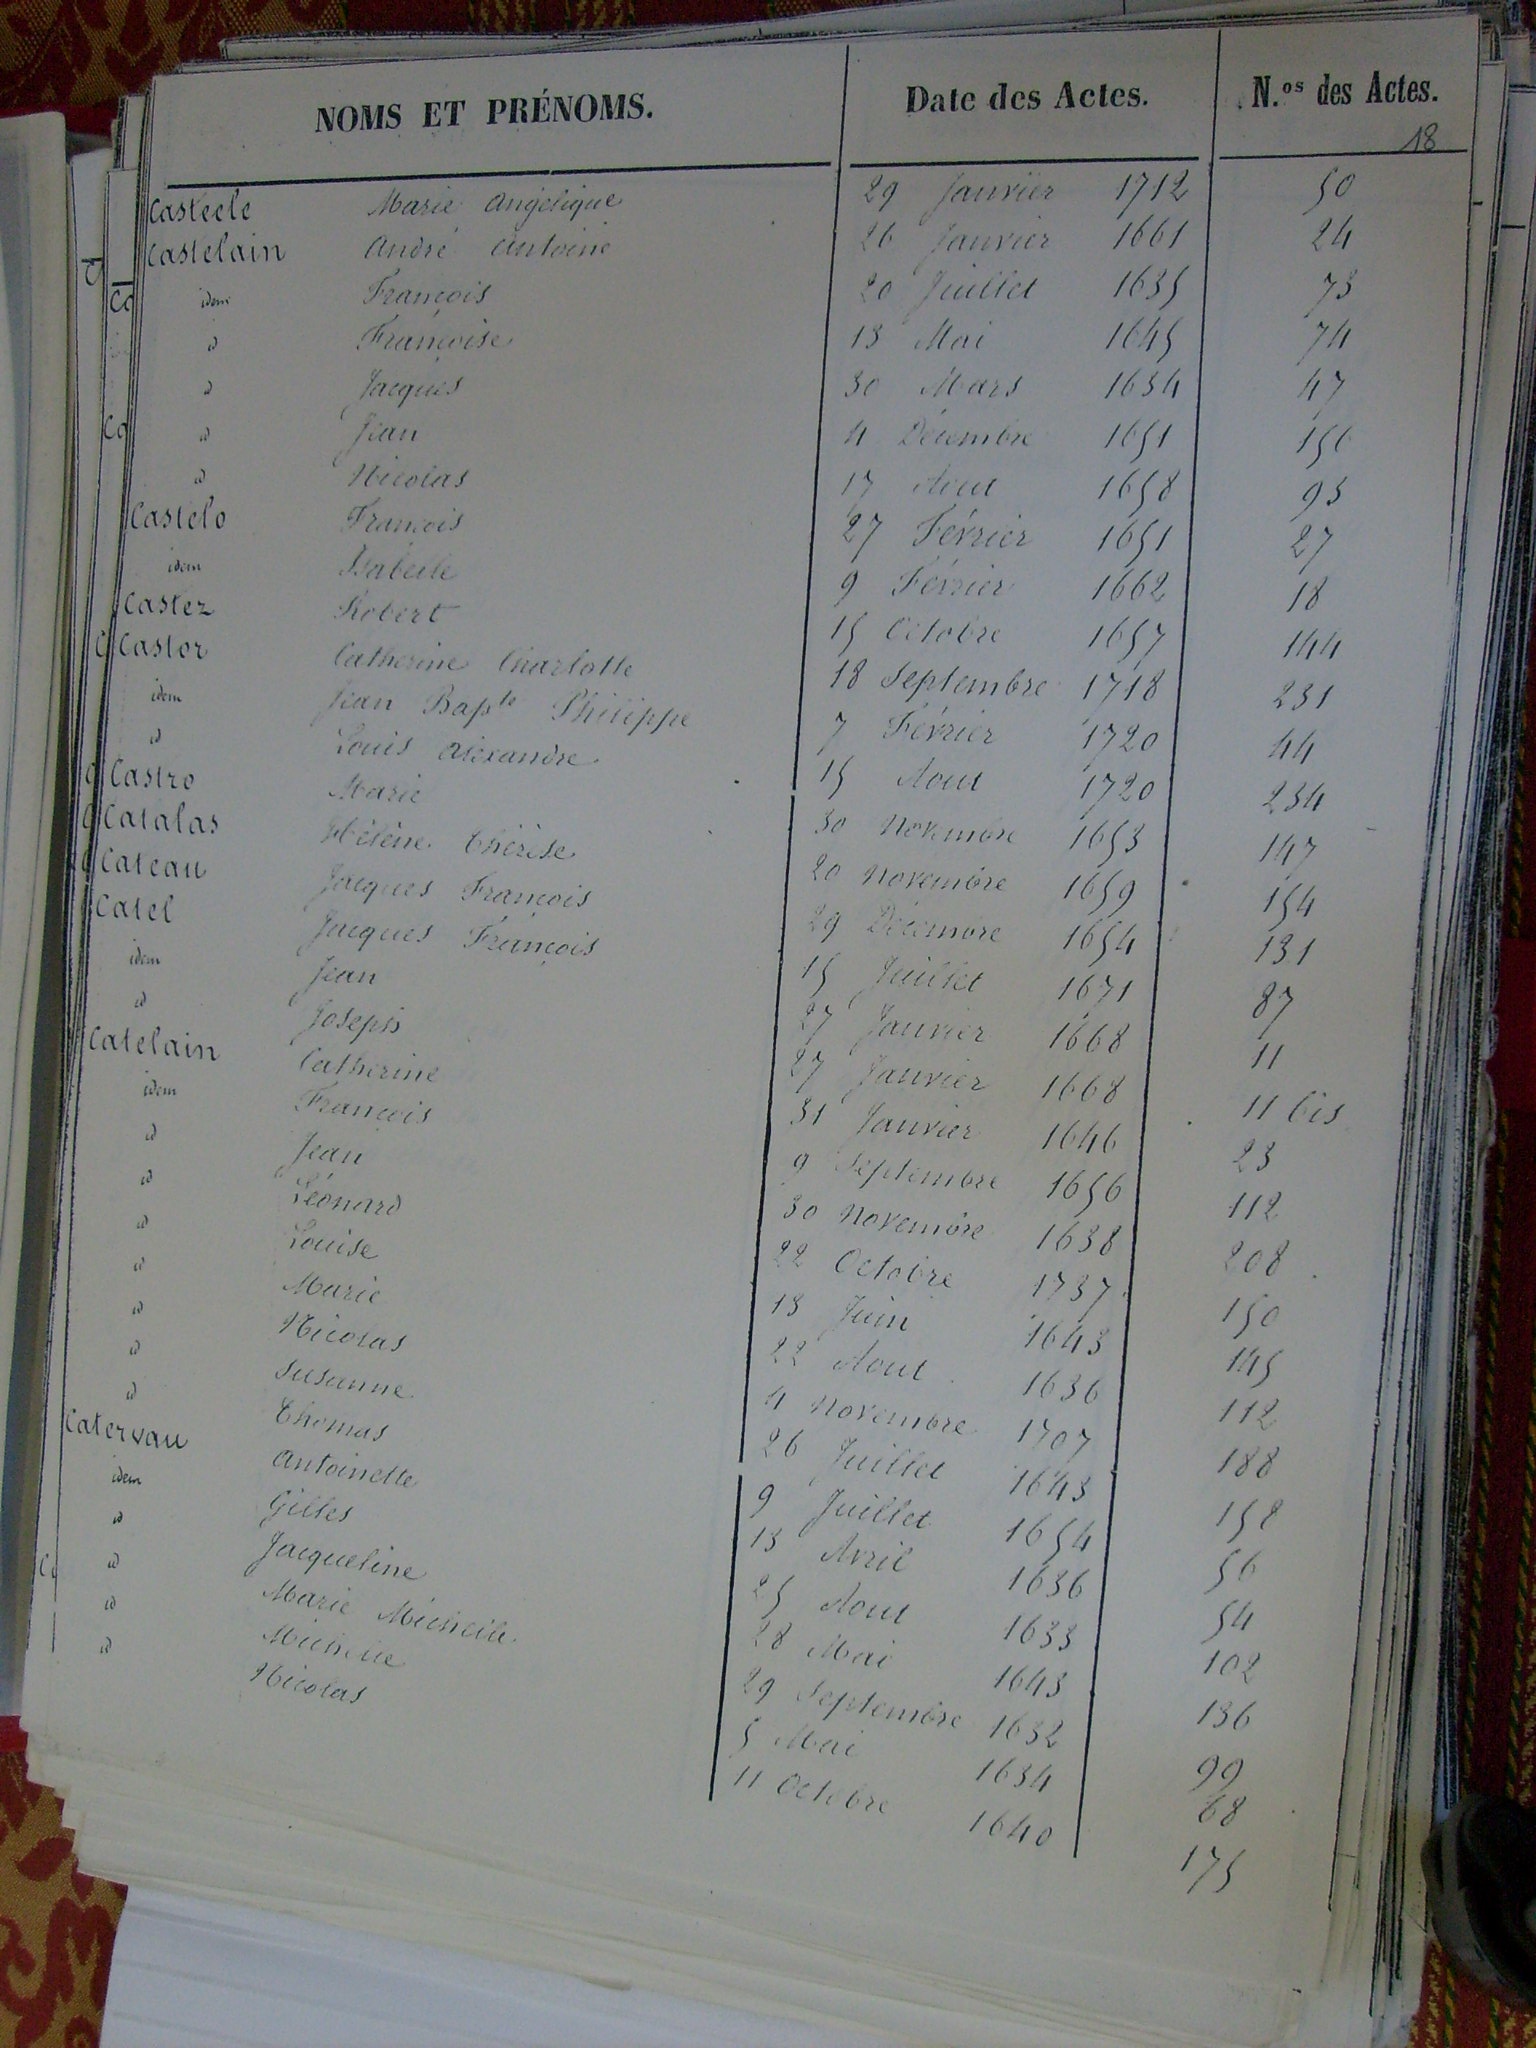 NOMS ET PRÉNOMS. Date des Actes. N.os des Actes.
18
Casteele Marie Angélique 29 Janvier 1712 50
Castelain André Antoine 26 Janvier 1661 24
idem François 20 Juillet 1635 73
id Françoise 13 Mai 1645 74
id Jacques 30 Mars 1634 47
id Jean 4 Décembre 1651 156
id Nicolas 17 Aout 1658 93
Castelo François 27 Février 1651 27
idem Isabelle 9 Février 1662 18
Castez Robert 15 Octobre 1657 144
Castor Catherine Charlotte 18 Septembre 1718 231
idem Jean Bapte Philippe 7 Février 1720 44
id Louis Alexandre 15 Aout 1720 234
Castro Marie 30 Novembre 1653 147
Catalas Hélène Thérèse 20 Novembre 1659 154
Cateau Jacques François 29 Décembre 1654 131
Catel Jacques François 15 Juillet 1671 87
idem Jean 27 Janvier 1668 11
id Joseph 27 Janvier 1668 11 bis
Catelain Catherine 31 Janvier 1646 23
idem François 9 Septembre 1656 112
id Jean 30 Novembre 1638 208
id Léonard 22 Octobre 1737 150
id Louise 13 Juin 1643 145
id Marie 22 Aout 1636 112
id Nicolas 4 Novembre 1707 188
id Susanne 26 Juillet 1643 158
id Thomas 9 Juillet 1654 56
Catervau Antoinette 13 Avril 1636 54
idem Gilles 25 Aout 1633 102
id Jacqueline 28 Mai 1643 136
id Marie Michelle 29 Septembre 1632 99
id Michelle 5 Mai 1634 68
id Nicolas 11 Octobre 1640 175